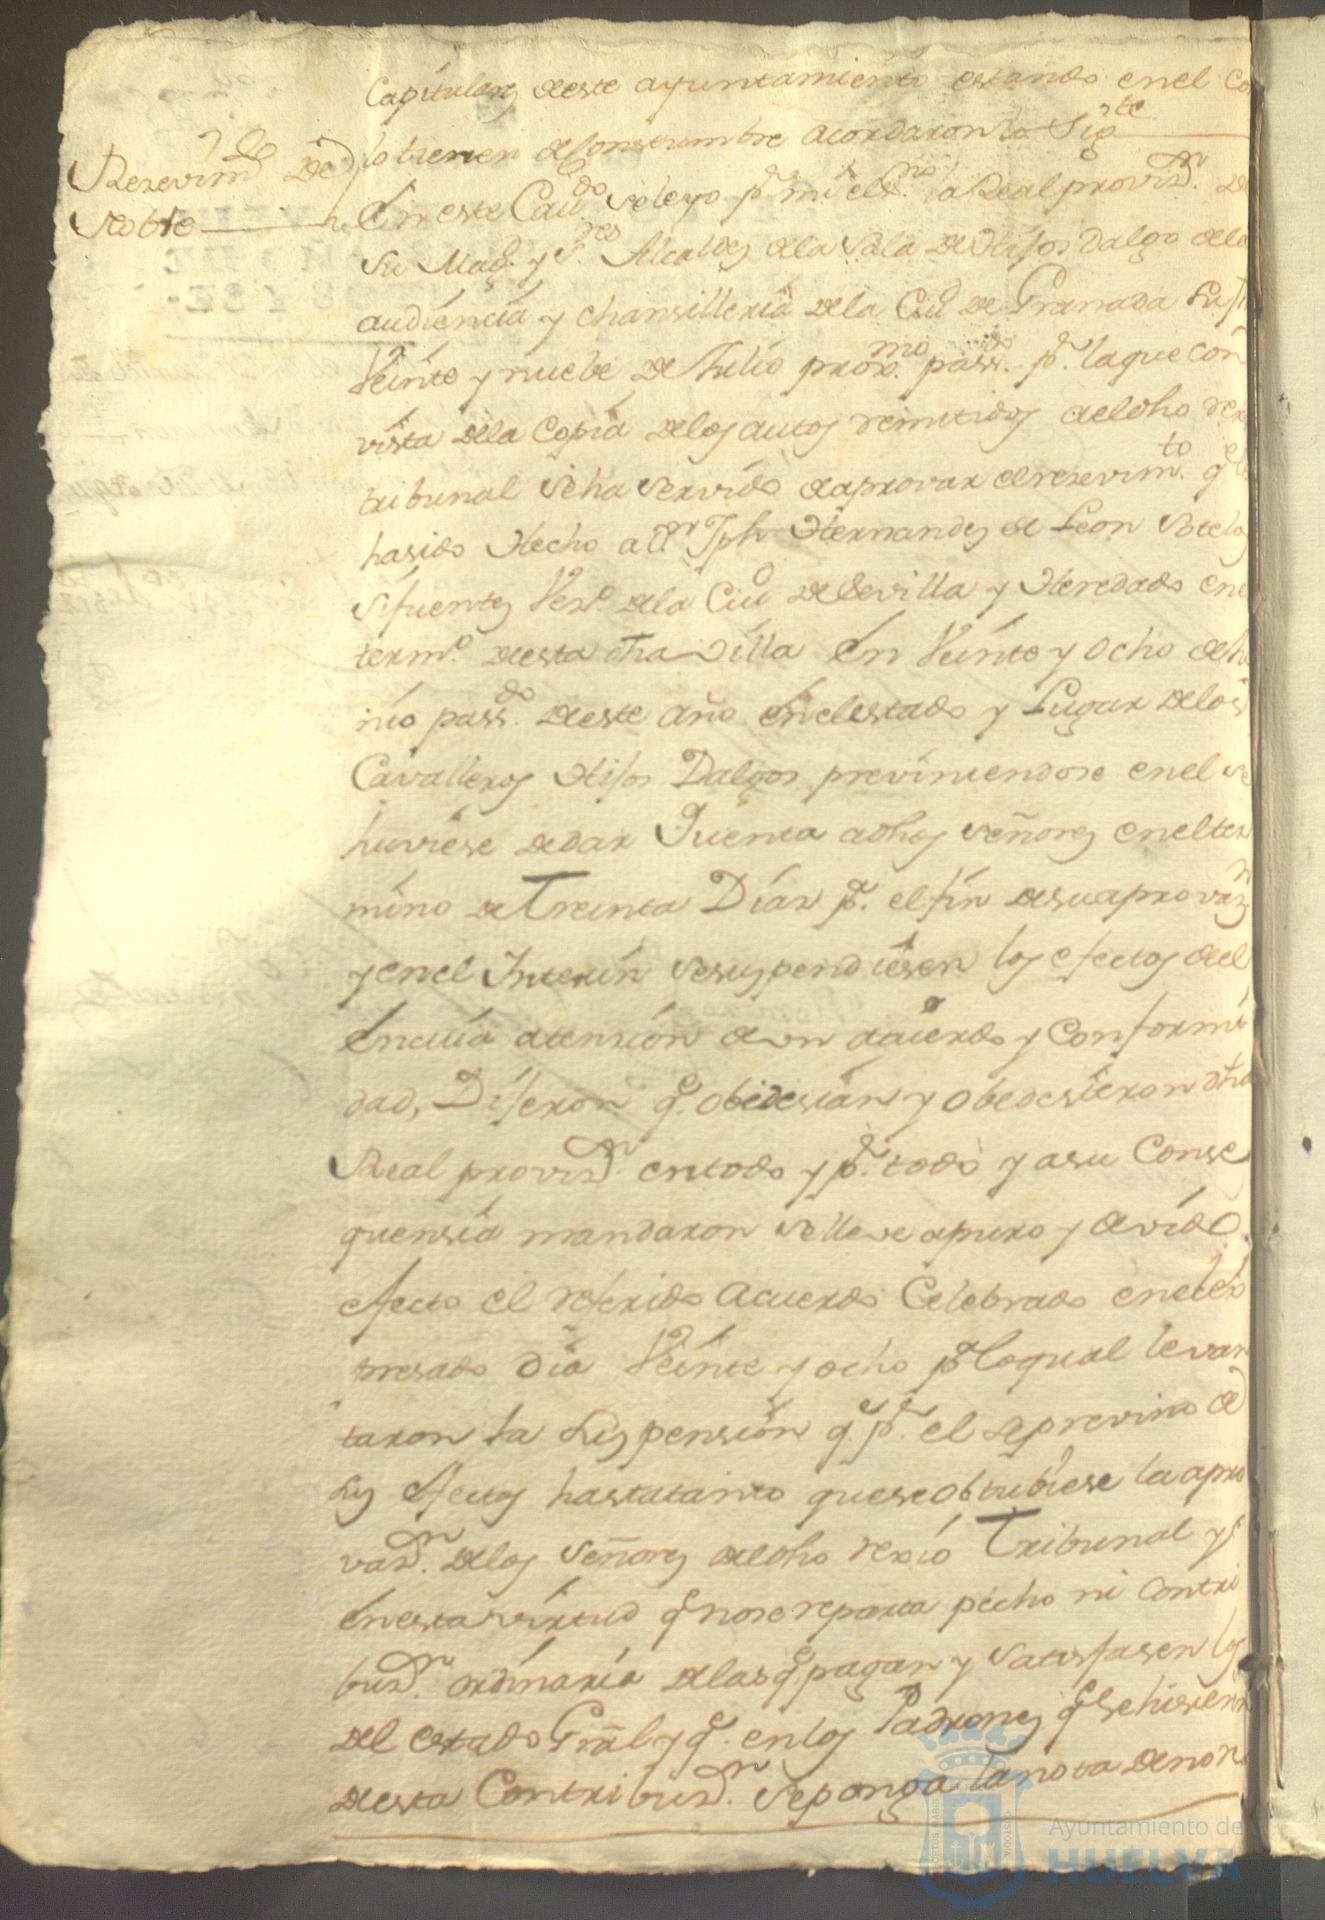 Capitulares deste ayuntamiento estando en el co
lo tienen de Constumbre acordaron lo Sigte
Resevimto De
Noble
En este Cavdo se leyo pr mi el ssno la Real provisn de
Su Magd y Sres Alcaldes de la Sala de Hijos Dalgo de la
audiencia y chansilleria de la Ciud de Granada Su fha
Veinte y nuebe de Julio proxmo passdo pr la que con
vista de la Copia de los autos remitidos a el dho rexo
tribunal se ha servido de aprovar el resevimto qe
ha sido Hecho a Dn Jph Hernandes de Leon Sotelo
Sifuentes Veso de la Ciud de Sevilla y Heredado en e
termo de esta dha villa En Veinte y Ocho de Ju
nio passdo de este año en el estado y Lugar de los
Cavalleros Hijos Dalgos previniendose en el se
huviese de dar Quenta a dhos señores en el ter
mino de Treinta Dias pa el fin de su aprovasn
y en el Interin se suspendiesen los efectos del
En cuia atension de un acuerdo y Conformi
dad, Dijeron qe obedesian y obedesieron dha
Real provisn en todo y pr todo y a su Conse
quensia mandaron se lleve a puro y devido
efecto el referido acuerdo Celebrado en el ex
presado dia Veinte y ocho pr lo qual levan
taron la suspension qe pr el se previno de
sus efectos hasta tanto que se obtubiese la apro
vasn de los señores del dho rexio Tribunal y
En esta virtud qe no se reparta pecho ni contri
busn ordinaria de las qe pagan y satisfasen los
del estado Gral y qe en los Padrones qe se hisieren
de esta Contribusn se ponga la nota de no
Ayuntamiento de
HUELVA